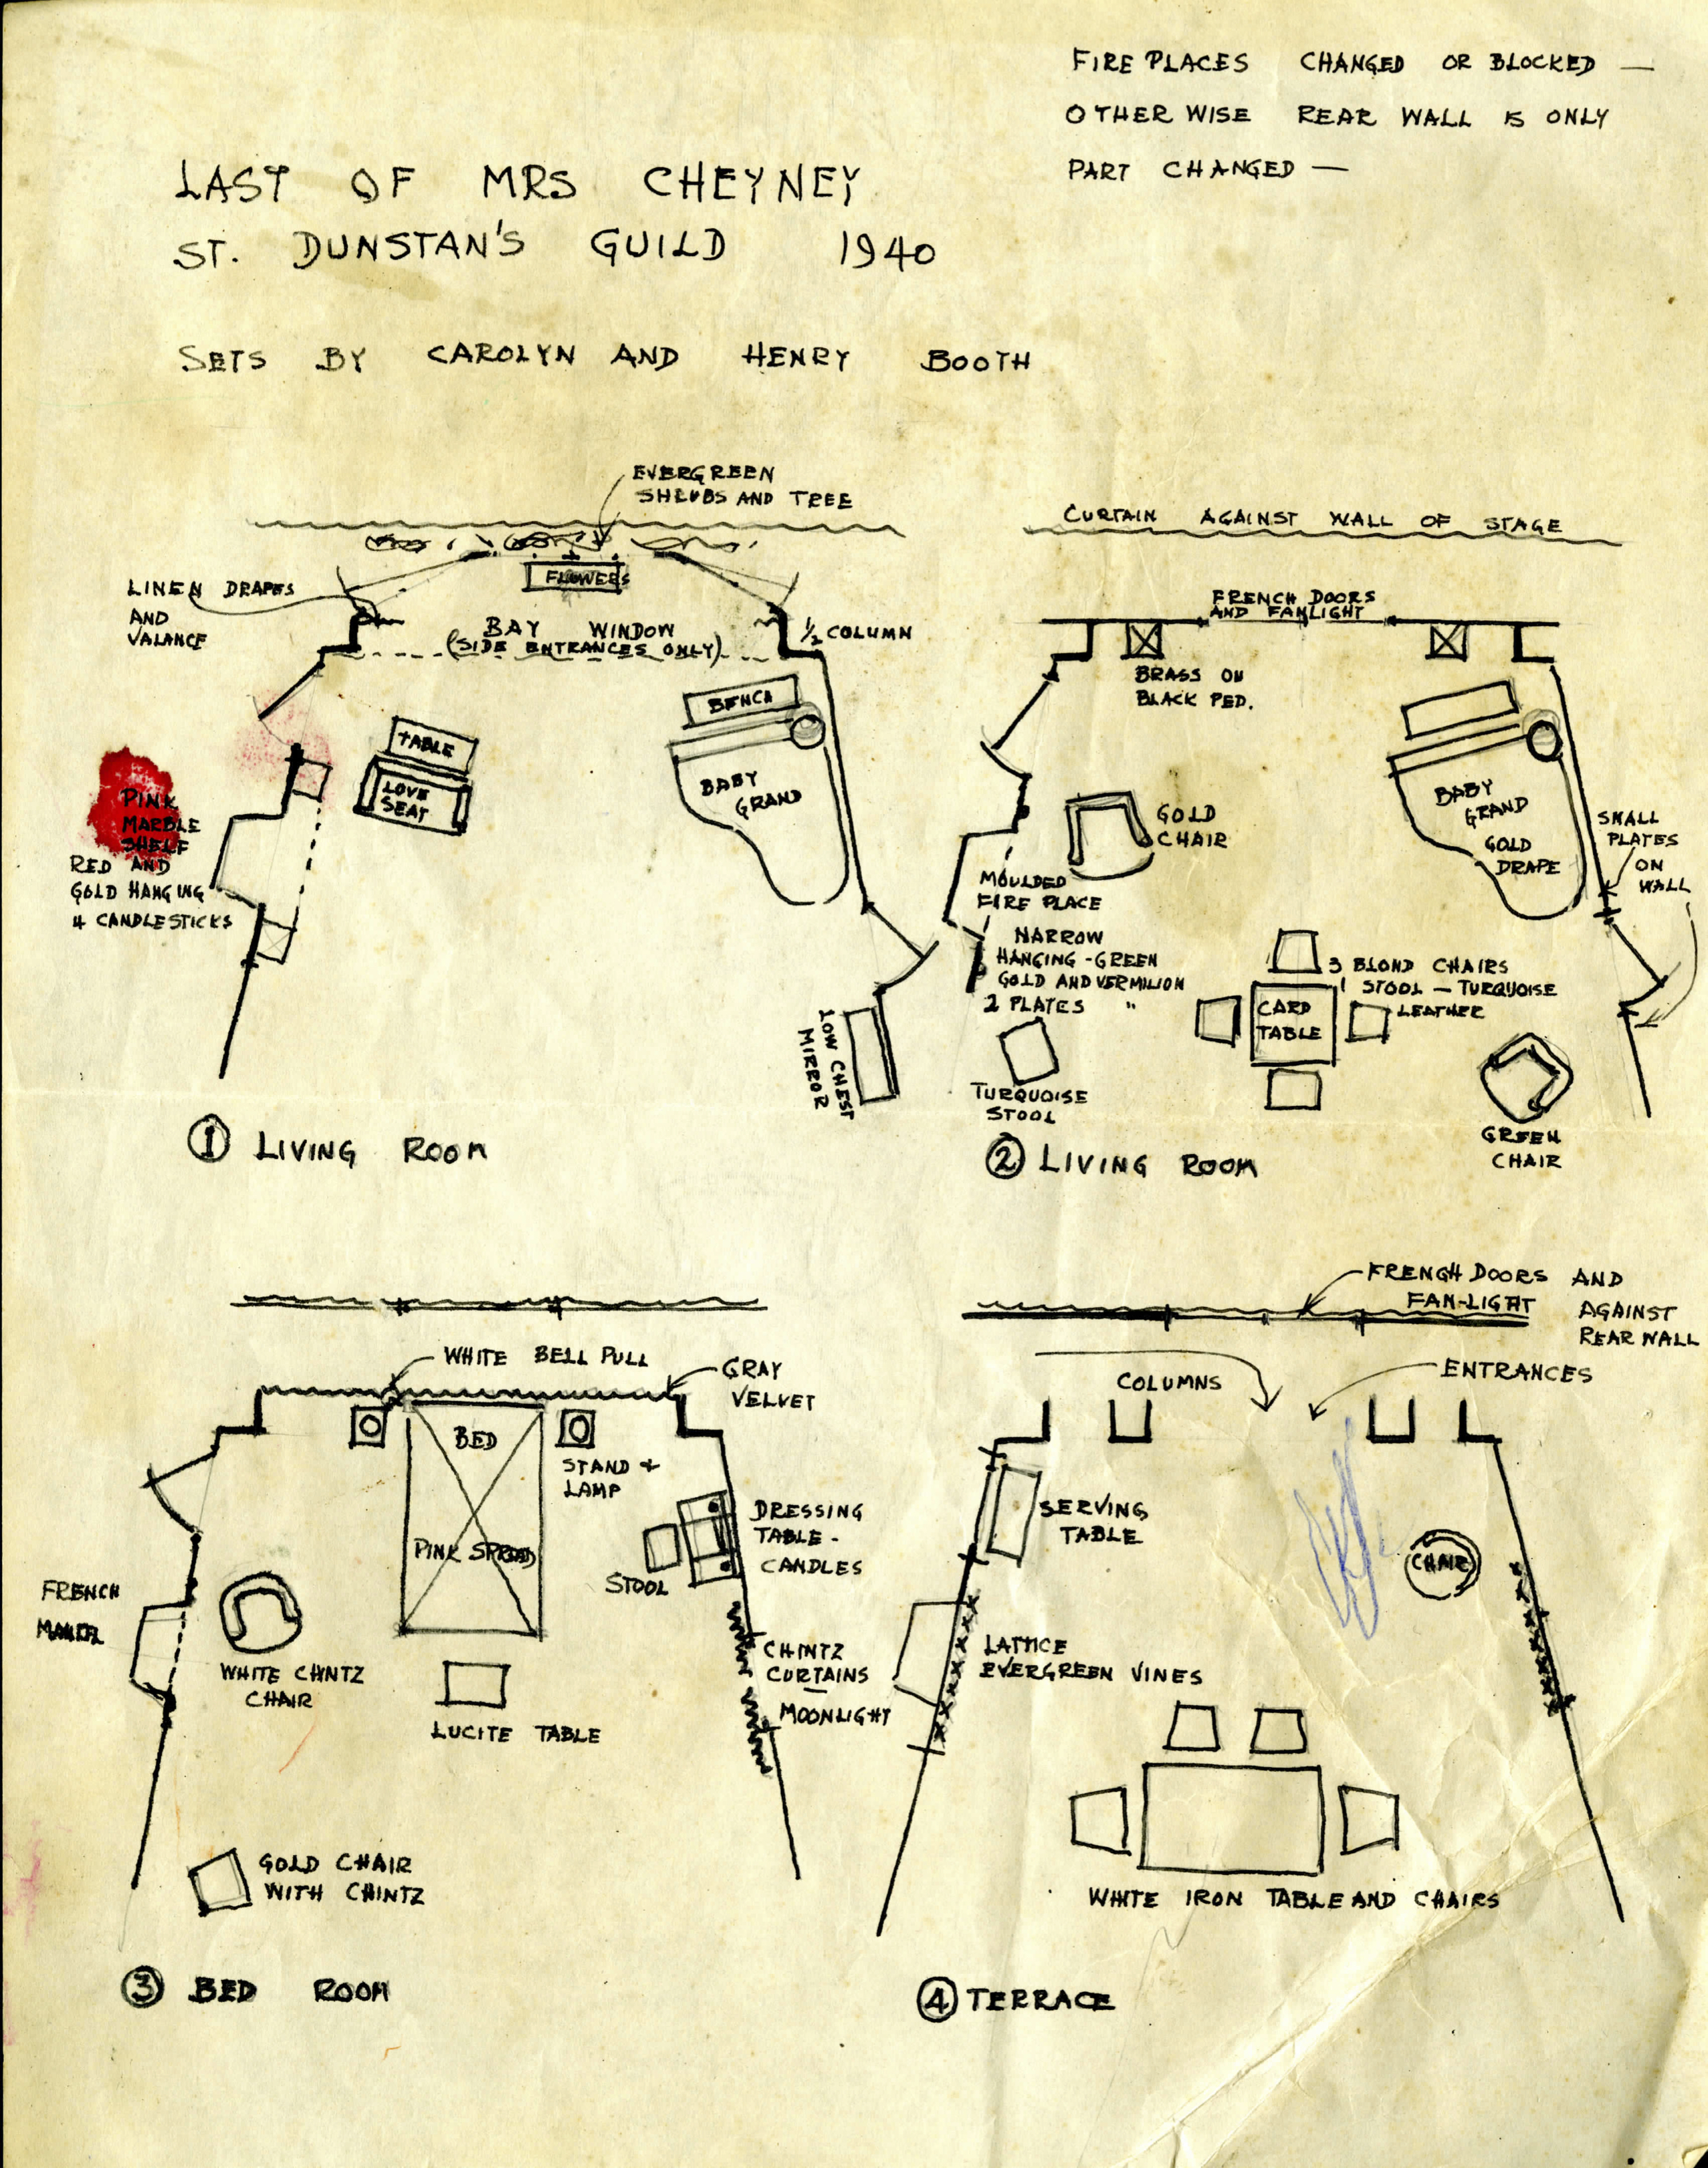 FIRE PLACES CHANGED OR BLOCKED —
OTHER WISE REAR WALL IS ONLY
PART CHANGED —
LAST OF MRS CHEYNEY
ST. DUNSTAN'S GUILD 1940
SETS BY CAROLYN AND HENRY BOOTH
EVERGREEN
SHRUBS AND TREE
FLOWERS
LINEN DRAPES
AND
VALANCE
BAY WINDOW
(SIDE ENTRANCES ONLY)
½ COLUMN
BENCH
TABLE
LOVE
SEAT
BABY
GRAND
PINK
MARBLE
SHELF
RED AND
GOLD HANGING
4 CANDLESTICKS
LOW CHEST
MIRROR
① LIVING ROOM
CURTAIN AGAINST WALL OF STAGE
FRENCH DOORS
AND FANLIGHT
BRASS ON
BLACK PED.
GOLD
CHAIR
BABY
GRAND
GOLD
DRAPE
SMALL
PLATES
ON
WALL
MOULDED
FIRE PLACE
NARROW
HANGING - GREEN
GOLD AND VERMILION
2 PLATES "
3 BLOND CHAIRS
1 STOOL — TURQUOISE
LEATHER
CARD
TABLE
TURQUOISE
STOOL
GREEN
CHAIR
② LIVING ROOM
WHITE BELL PULL
GRAY
VELVET
BED
STAND +
LAMP
PINK SPREAD
DRESSING
TABLE -
CANDLES
STOOL
FRENCH
MANTEL
WHITE CHINTZ
CHAIR
LUCITE TABLE
CHINTZ
CURTAINS
—
MOONLIGHT
GOLD CHAIR
WITH CHINTZ
③ BED ROOM
FRENCH DOORS AND
FAN-LIGHT AGAINST
REAR WALL
COLUMNS
ENTRANCES
SERVING
TABLE
CHAIR
LATTICE
EVERGREEN VINES
WHITE IRON TABLE AND CHAIRS
④ TERRACE